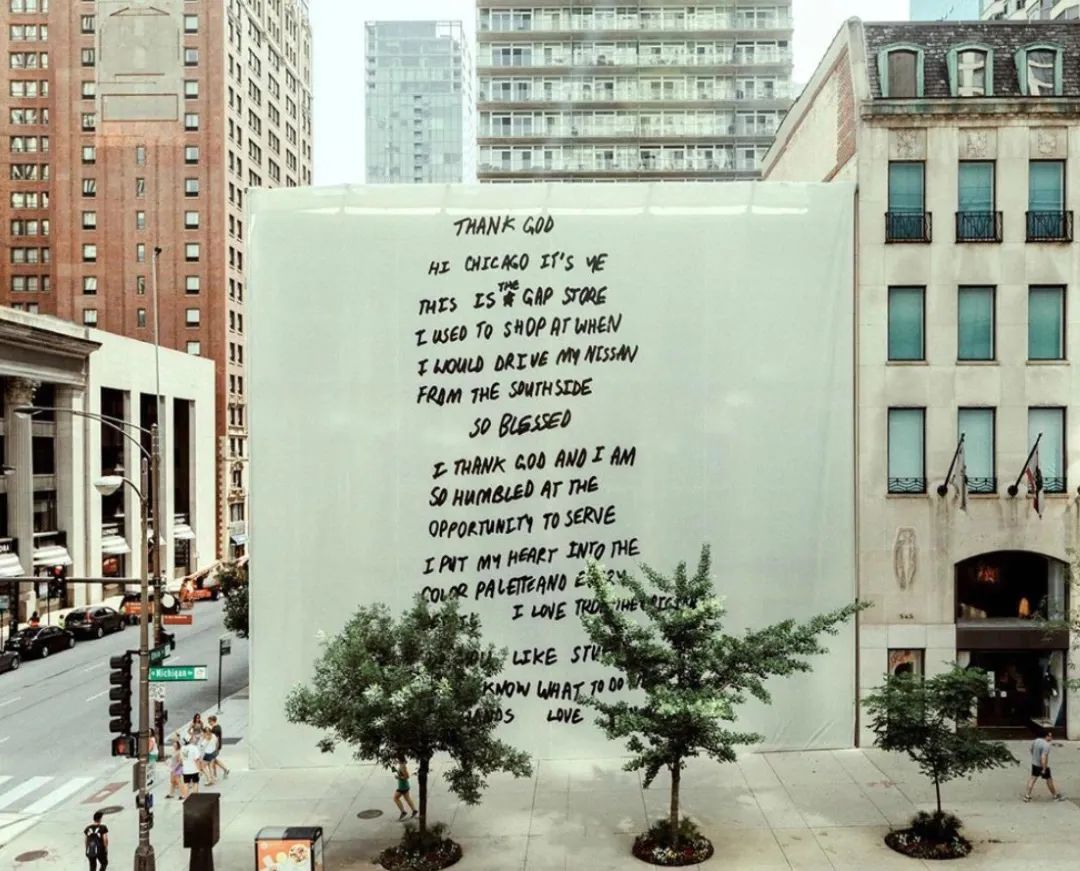 THANK GOD
HI CHICAGO IT'S YE
THIS IS THE GAP STORE
I USED TO SHOP AT WHEN
I WOULD DRIVE MY NISSAN
FROM THE SOUTHSIDE
SO BLESSED
I THANK GOD AND I AM
SO HUMBLED AT THE
OPPORTUNITY TO SERVE
I PUT MY HEART INTO THE
COLOR PALETTE AND
I LOVE
LIKE
KNOW WHAT TO DO
HANDS LOVE
Michigan
543